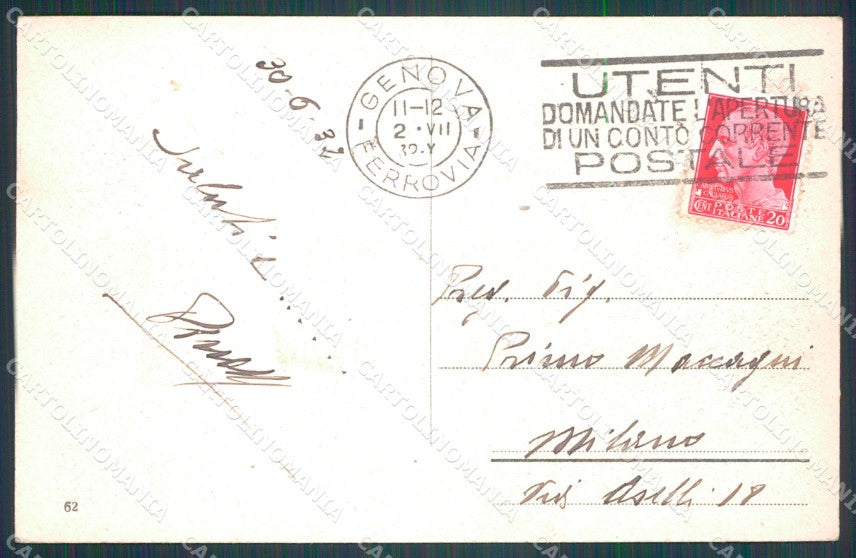 30-6-32
Saluti e ......
GENOVA
11-12
2 · VII
FERROVIA
UTENTI
DOMANDATE L'APERTURA
DI UN CONTO CORRENTE
POSTALE
POSTE
CENT ITALIANE 20
Preg. Sig.
Primo Maccagni
Milano
Via Aselli 18
62
CARTOLINOMANIA